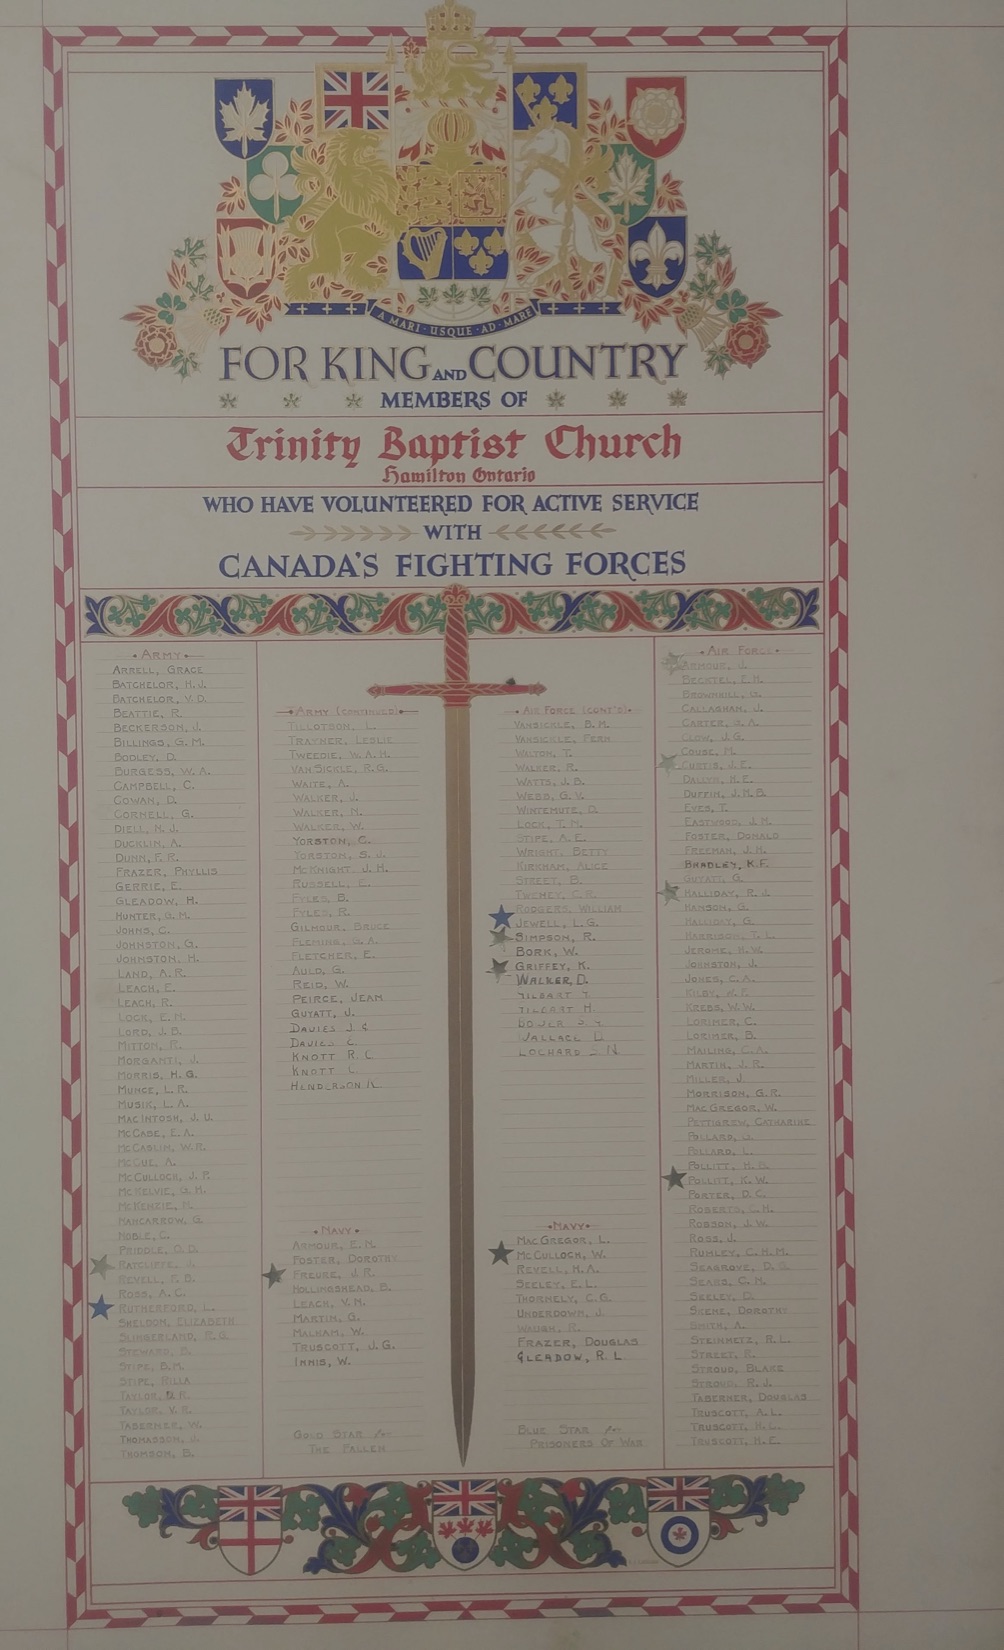 A MARI · USQUE · AD · MARE
FOR KING AND COUNTRY
MEMBERS OF
Trinity Baptist Church
Hamilton Ontario
WHO HAVE VOLUNTEERED FOR ACTIVE SERVICE
WITH
CANADA'S FIGHTING FORCES
ARMY
ARRELL, GRACE
BATCHELOR, H.J.
BATCHELOR, V.D.
BEATTIE, R.
BECKERSON, J.
BILLINGS, G.M.
BODLEY, D.
BURGESS, W.A.
CAMPBELL, C.
COWAN, D.
CORNELL, G.
DIELL, N.J.
DUCKLIN, A.
DUNN, F.R.
FRAZER, PHYLLIS
GERRIE, E.
GLEADOW, H.
HUNTER, G.M.
JOHNS, C.
JOHNSTON, G.
JOHNSTON, H.
LAND, A.R.
LEACH, E.
LEACH, R.
LOCK, E.M.
LORD, J.B.
MITTON, R.
MORGANTI, J.
MORRIS, H.G.
MUNCE, L.R.
MUSIK, L.A.
MACINTOSH, J.U.
MCCASE, E.A.
MCCASLIN, W.R.
MCCUE, A.
MCCULLOCH, J.P.
MCKELVIE, G.H.
MCKENZIE,
NANCARROW, G.
NOBLE, C.
PRIDDLE, O.D.
RATCLIFFE,
REVELL, F.B.
ROSS, A.C.
RUTHERFORD, L.
SHELDON, ELIZABETH
SLINGERLAND, R.G.
STEWARD,
STIPE, B.M.
STIPE, RILLA
TAYLOR,
TAYLOR, V.R.
TABERNER, W.
THOMASSON, J.
THOMSON, B.
ARMY (CONTINUED)
TILLOTSON, L.
TRAYNER, LESLIE
TWEEDIE, W.A.H.
VANSICKLE, R.G.
WAITE, A.
WALKER, J.
WALKER, N.
WALKER, W.
YORSTON, C.
YORSTON, S.J.
MCKNIGHT, J.H.
RUSSELL, E.
FYLES, B.
FYLES, R.
GILMOUR, BRUCE
FLEMING, G.A.
FLETCHER, E.
AULD, G.
REID, W.
PEIRCE, JEAN
GUYATT, J.
DAVIES J C
DAVIES C
KNOTT R C
KNOTT L
HENDERSON K
NAVY
ARMOUR, E.N.
FOSTER, DOROTHY
FREURE, J.R.
HOLLINGSHEAD, B.
LEACH, V.N.
MARTIN, G.
MALHAM, W.
TRUSCOTT, J.G.
INNIS, W.
GOLD STAR for
THE FALLEN
AIR FORCE (CONT'D)
VANSICKLE, B.M.
VANSICKLE, FERN
WALTON, T.
WALKER, R.
WATTS, J.B.
WEBB, G.V.
WINTEMUTE, D.
LOCK, T.N.
STIPE, A.E.
WRIGHT, BETTY
KIRKHAM, ALICE
STREET, B.
TWEMEY, C.R.
RODGERS, WILLIAM
JEWELL, L.G.
SIMPSON, R.
BORK, W.
GRIFFEY, K.
WALKER, D.
TILBART
TILBART H.
WALLACE D
LOCHARD
NAVY
MACGREGOR, L.
MCCULLOCH, W.
REVELL, H.A.
SEELEY, E.L.
THORNELY, C.G.
UNDERDOWN, J.
WAUGH, R.
FRAZER, DOUGLAS
GLEADOW, R.L.
BLUE STAR for
PRISONERS OF WAR
AIR FORCE
ARMOUR, J.
BECHTEL, E.H.
BROWNHILL, G.
CALLAGHAN, J.
CARTER, G.A.
CLOW, J.G.
COUSE, M.
CURTIS, J.E.
DALLYN, H.E.
DUFFIN, J.H.B.
EVES, T.
EASTWOOD, J.N.
FOSTER, DONALD
FREEMAN, J.H.
BRADLEY, K.F.
GUYATT, G.
HALLIDAY, R.J.
HANSON, G.
HALLIDAY, G.
HARRISON, T.L.
JEROME, H.W.
JOHNSTON, J.
JONES, C.A.
KILBY,
KREBS, W.W.
LORIMER, C.
LORIMER, B.
MAILING, C.A.
MARTIN, J.R.
MILLER, J.
MORRISON, G.R.
MACGREGOR, W.
PETTIGREW, CATHARINE
POLLARD, G.
POLLARD, L.
POLLITT,
POLLITT, K.W.
PORTER, D.C.
ROBERTS, C.H.
ROBSON, J.W.
ROSS, J.
RUMLEY, C.H.M.
SEAGROVE,
SEARS, C.N.
SEELEY, D.
SKENE, DOROTHY
SMITH, A.
STEINMETZ, R.L.
STREET,
STROUD, BLAKE
STROUD, R.J.
TABERNER, DOUGLAS
TRUSCOTT, A.L.
TRUSCOTT, H.C.
TRUSCOTT, H.E.